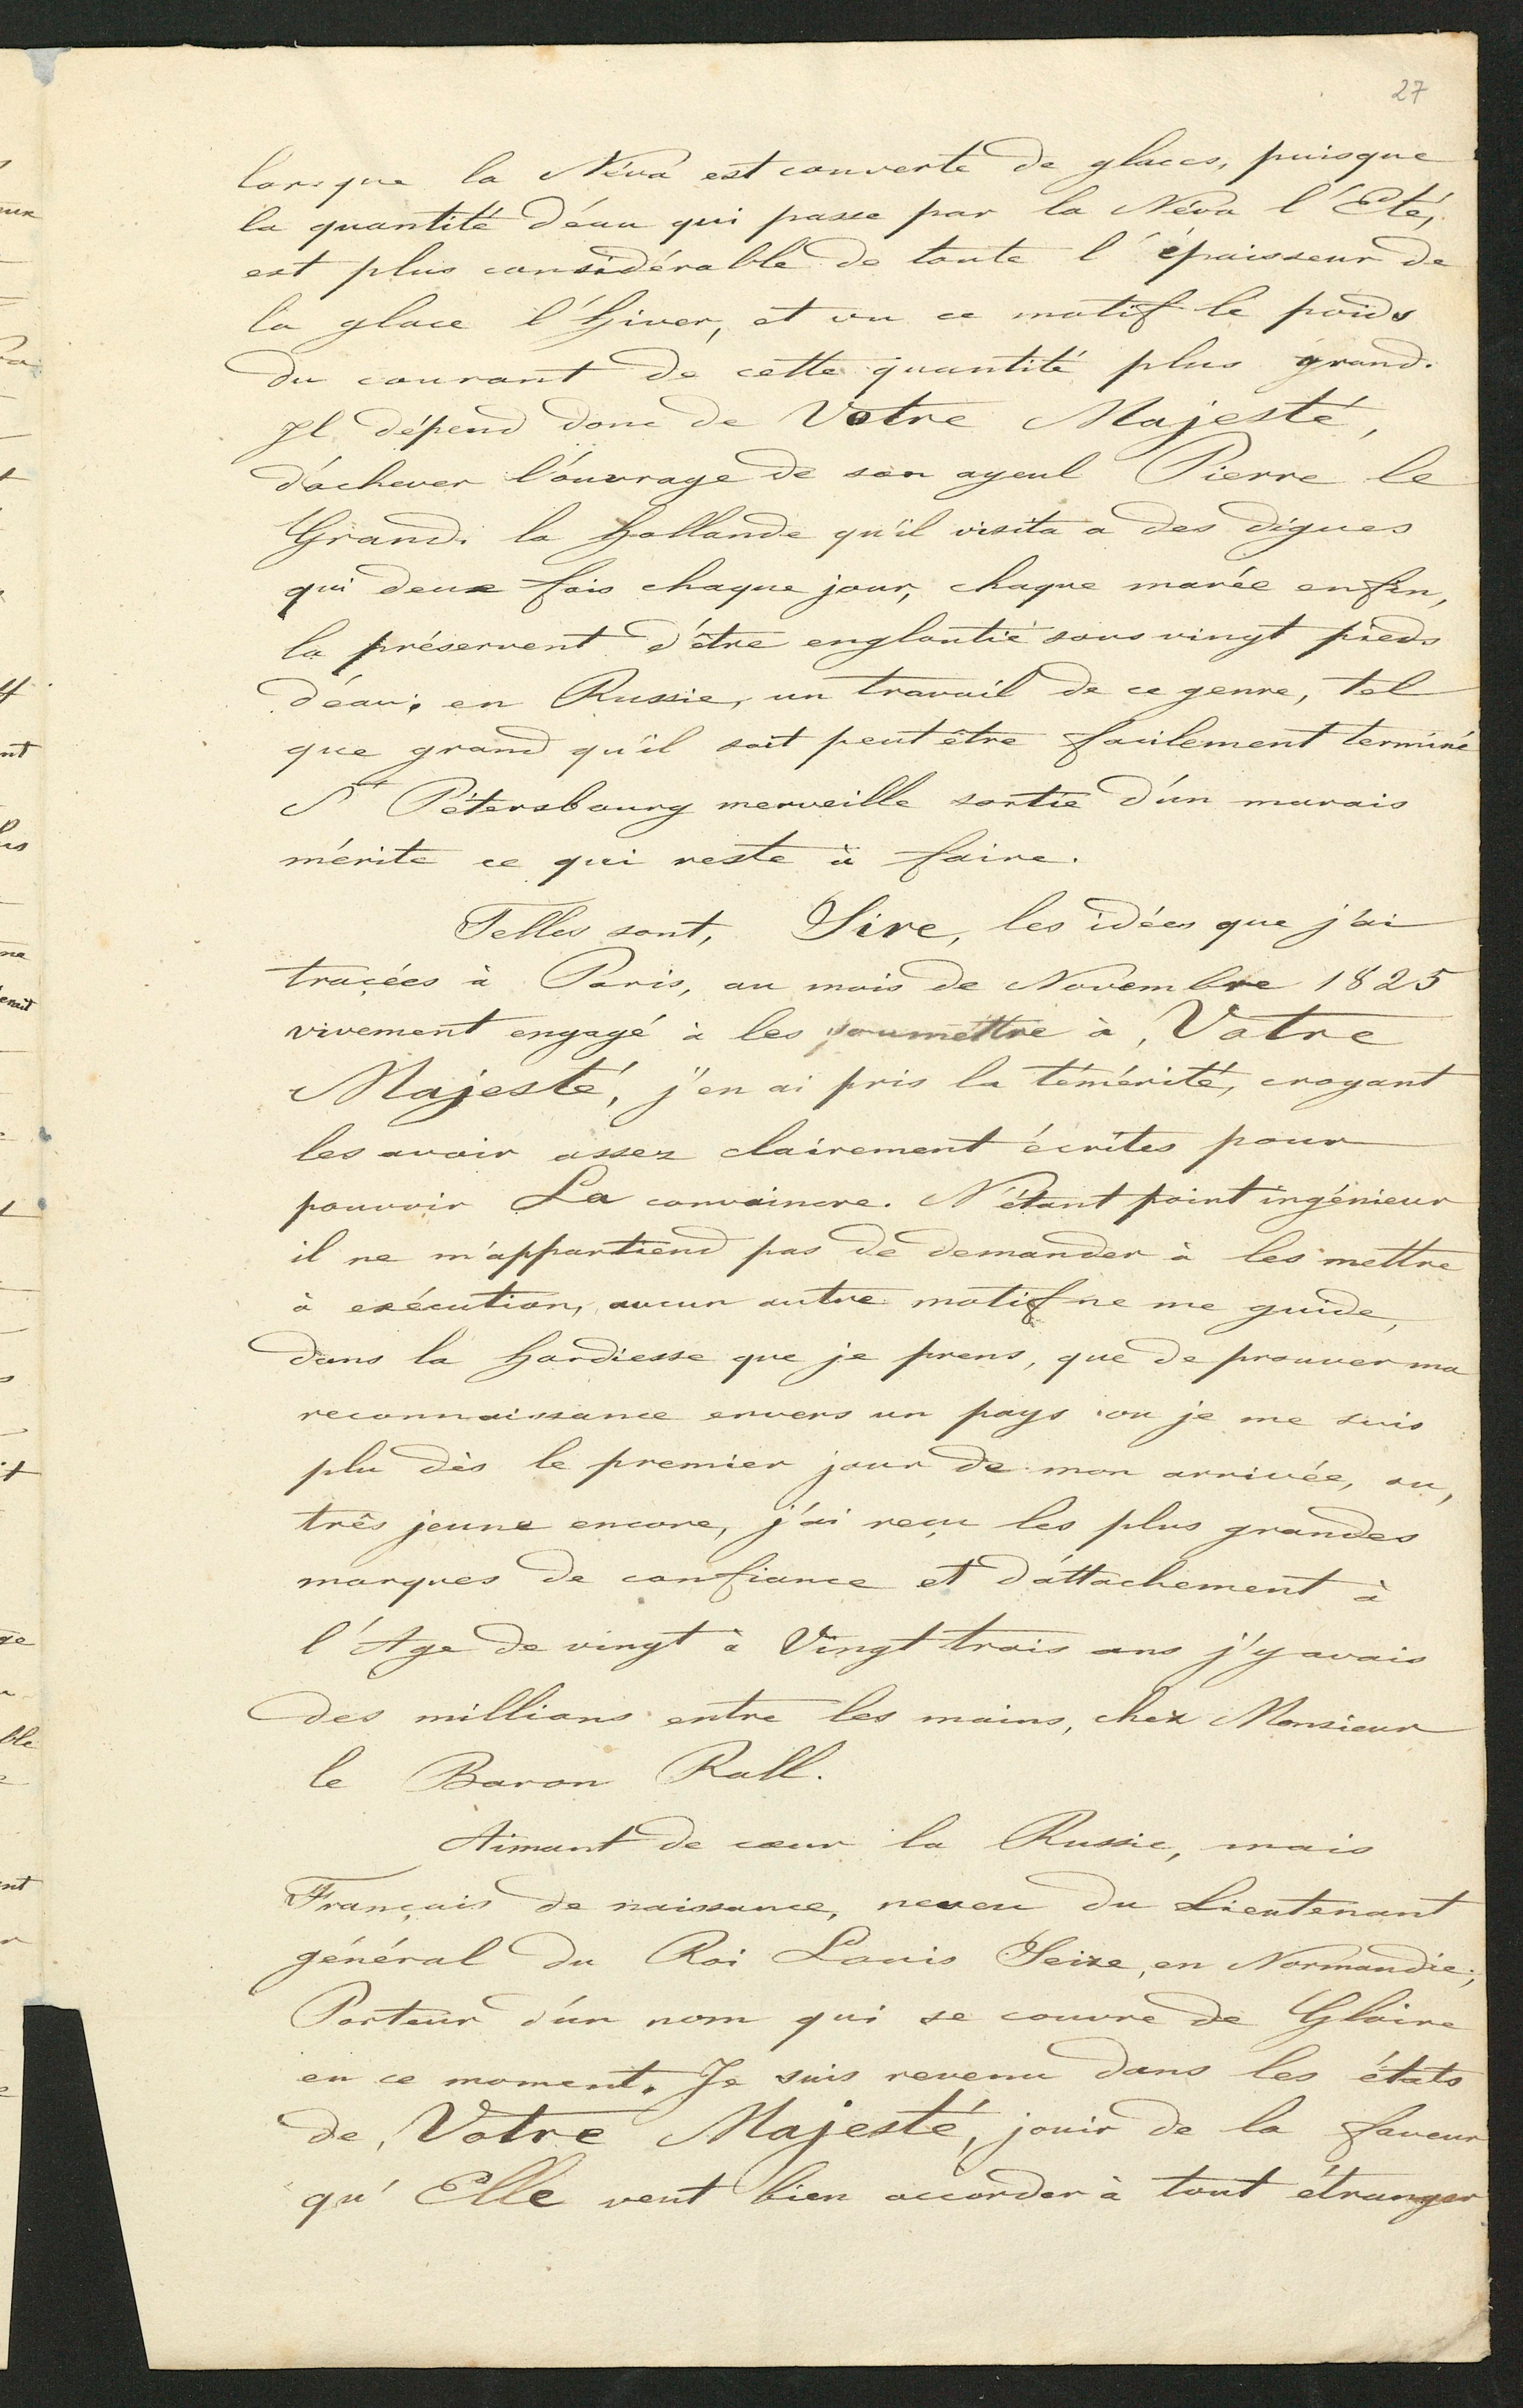 27
lorsque la Néva est couverte de glaces, puisque
la quantité d'éau qui passe par la Néva l'Eté,
est plus considérable de toute l'épaisseur de
la glace l'hiver, et vu ce motif le poids
du courant de cette quantité plus grand.
Il dépend donc de Votre Majesté,
d'achever l'ouvrage de son ayeul Pierre le
Grand. la hollande qu'il visita a des digues
qui deux fois chaque jour, chaque marée enfin,
la préservent d'être engloutie sous vingt pieds
d'éau; en Russie, un travail de ce genre, tel
que grand qu'il soit peut être facilement terminé
St Pétersbourg merveille sortie d'un marais
mérite ce qui reste à faire.
Telles sont, Sire, les idées que j'ai
tracées à Paris, au mois de Novembre 1825
vivement engagé à les soumettre à, Votre
Majesté, j'en ai pris la témérité, croyant
les avoir assez clairement écrites pour
pouvoir La convaincre. N'étant point ingénieur
il ne m'appartiend pas de demander à les mettre
à exécution, aucun autre motif ne me guide,
dans la hardiesse que je prens, que de prouver ma
reconnaissance envers un pays ou je me suis
plu dès le premier jour de mon arrivée, ou,
très jeune encore, j'ai reçu les plus grandes
marques de confiance et d'attachement à
l'Age de vingt à Vingt trois ans j'y avais
des millions entre les mains, chez Monsieur
le Baron Rall.
Aimant de cœur la Russie, mais
Français de naissance, neveu du Lieutenant
général du Roi Louis Seize, en Normandie;
Porteur d'un nom qui se couvre de Gloire
en ce moment. Je suis revenu dans les états
de, Votre Majesté, jouir de la faveur
qu'Elle veut bien accorder à tout étranger